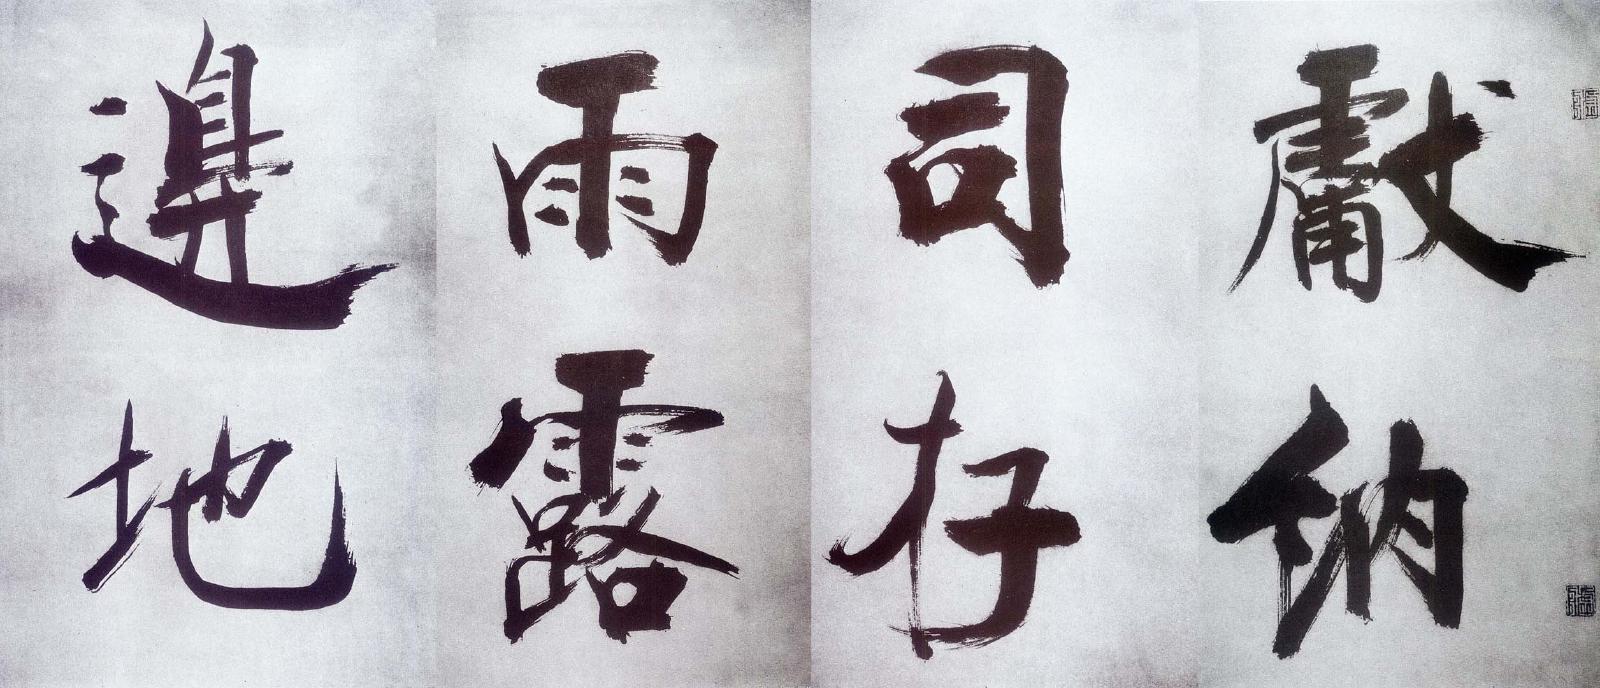 獻納
司存
雨露
邊地